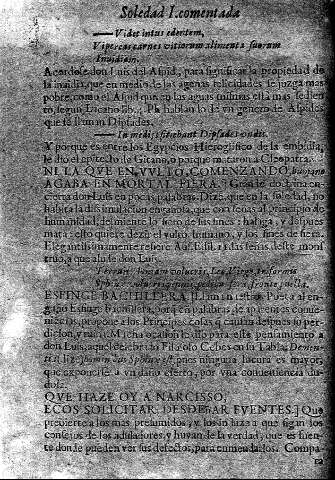 Soledad I. comentada
Videt intus edentem,
Vipereas carnes vitiorum alimenta suorum
Invidiam.
Acordose don Luis del Aspid, para significar la propiedad de
la invidia, que en medio de las agenas felicidades se juzga mas
pobre, como el Aspid que en las aguas mismas està mas sedien
to, segun Lucano lib. 9. Phars. hablando de vn genero de Aspides
que se llaman Dipsades.
In mediis sitiebant Dipsades vndis.
Y porque es entre los Egypcios Hieroglifico de la embidia,
le dio el epiteto de Gitano, ò porque mataron a Cleopatra.
NI LA QVE EN VVLTO, COMENZANDO, humano
ACABA EN MORTAL FIERA.] Grande doctrina en
cierra don Luis en pocas palabras. Dize, que en la soledad, no
habita la dissimulacion engañosa, que con señas al principio de
humanidad, desmiente lo fiero de sus fines: halaga, y despues
mata: esto quiere dezir el vulto humano, y los fines de fiera.
Elegantissimamente refiere las señas deste mons
truo, a que alude don Luis.
Terruit volucris, Leo, Virgo, triformis
Sphinx, volucris pennis, pedibus fera, fronte puella.
ESFINGE BACHILLERA.] Llama nuestro Poeta al en-
gaño Esfinge bachillera, porque en palabras de aparentes conue-
niencias, propone a los Principes cosas que causan despues su per-
dicion, y ruina. Mucha ocasion le dio para este pensamiento a
don Luis, aquel celebrado Filosofo Cebes en su Tabla:
pues ninguna locura es mayor,
que exponerse a vn daño cierto, por vna conueniencia du-
dosa.
QVE HAZE OY A NARCISSO,
ECOS SOLICITAR, DESDEÑAR FVENTES.] Que
preuierte a los mas presumidos, y los inclina a que sigan los
consejos de los aduladores, y huyan de la verdad, que es fuen-
te donde pueden ver sus defectos, para enmendarlos. Compa-